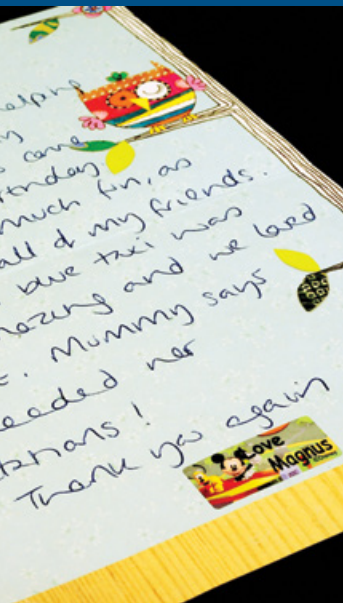 elping
ny
came
rthday
much fun, as
all of my friends.
blue taxi was
mazing and we loved
t. Mummy says
eeded her
tations!
Thank you again
Love
Magnus